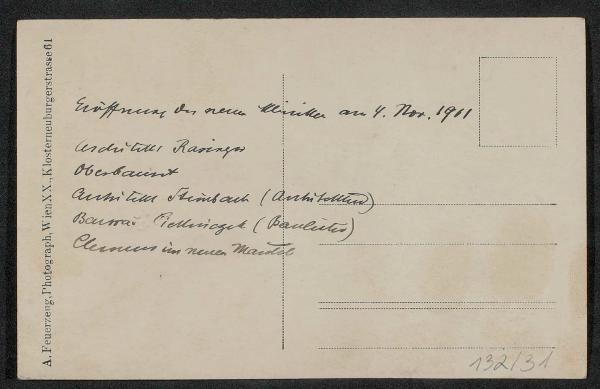 Eröffnung der neuen Kliniken am 4. Nov. 1911
Architekt
Oberbaurat
Architekt Steinbach (Architekten)
Baurat (Bauleiter)
Clemens im neuen Mantel
A. Feuerzeug, Photograph, Wien XX., Klosterneuburgerstrasse 61
132/31